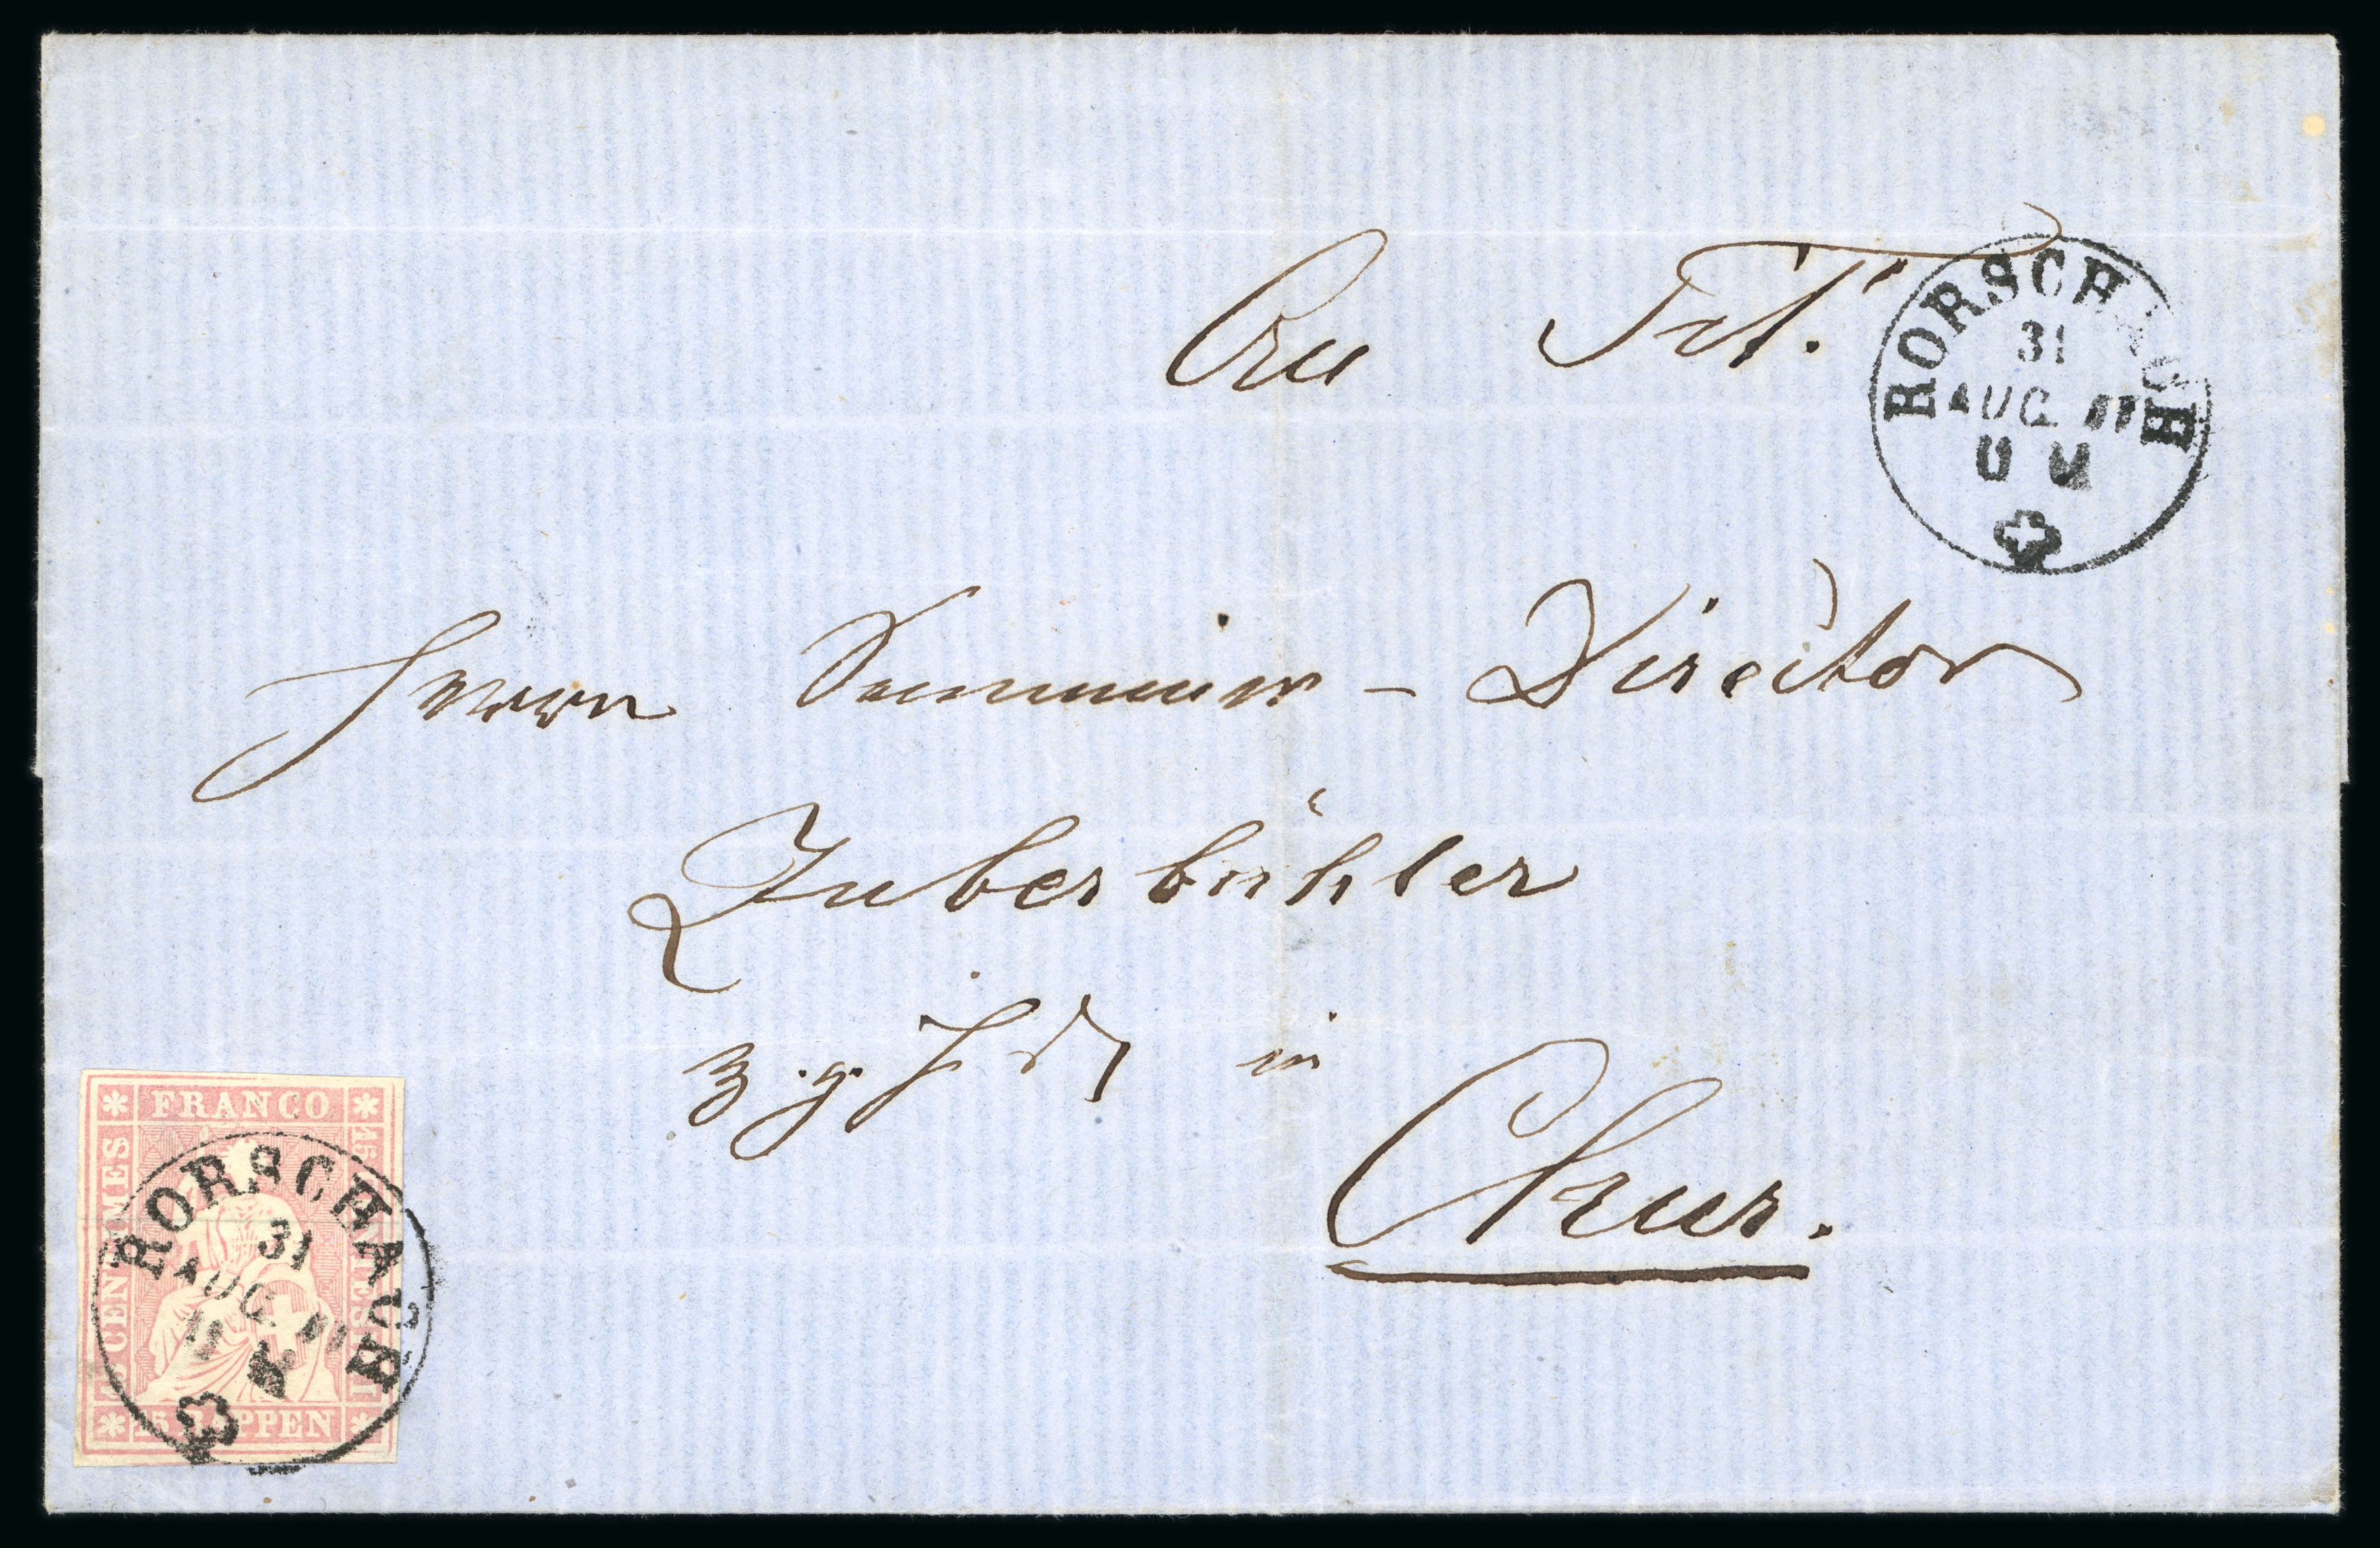 An Tit.
RORSCHACH
31
AUG
Herrn Seminar-Director
Zuberbühler
z. g. H d in
Chur.
FRANCO
RORSCHACH
31
AUG
15 RAPPEN